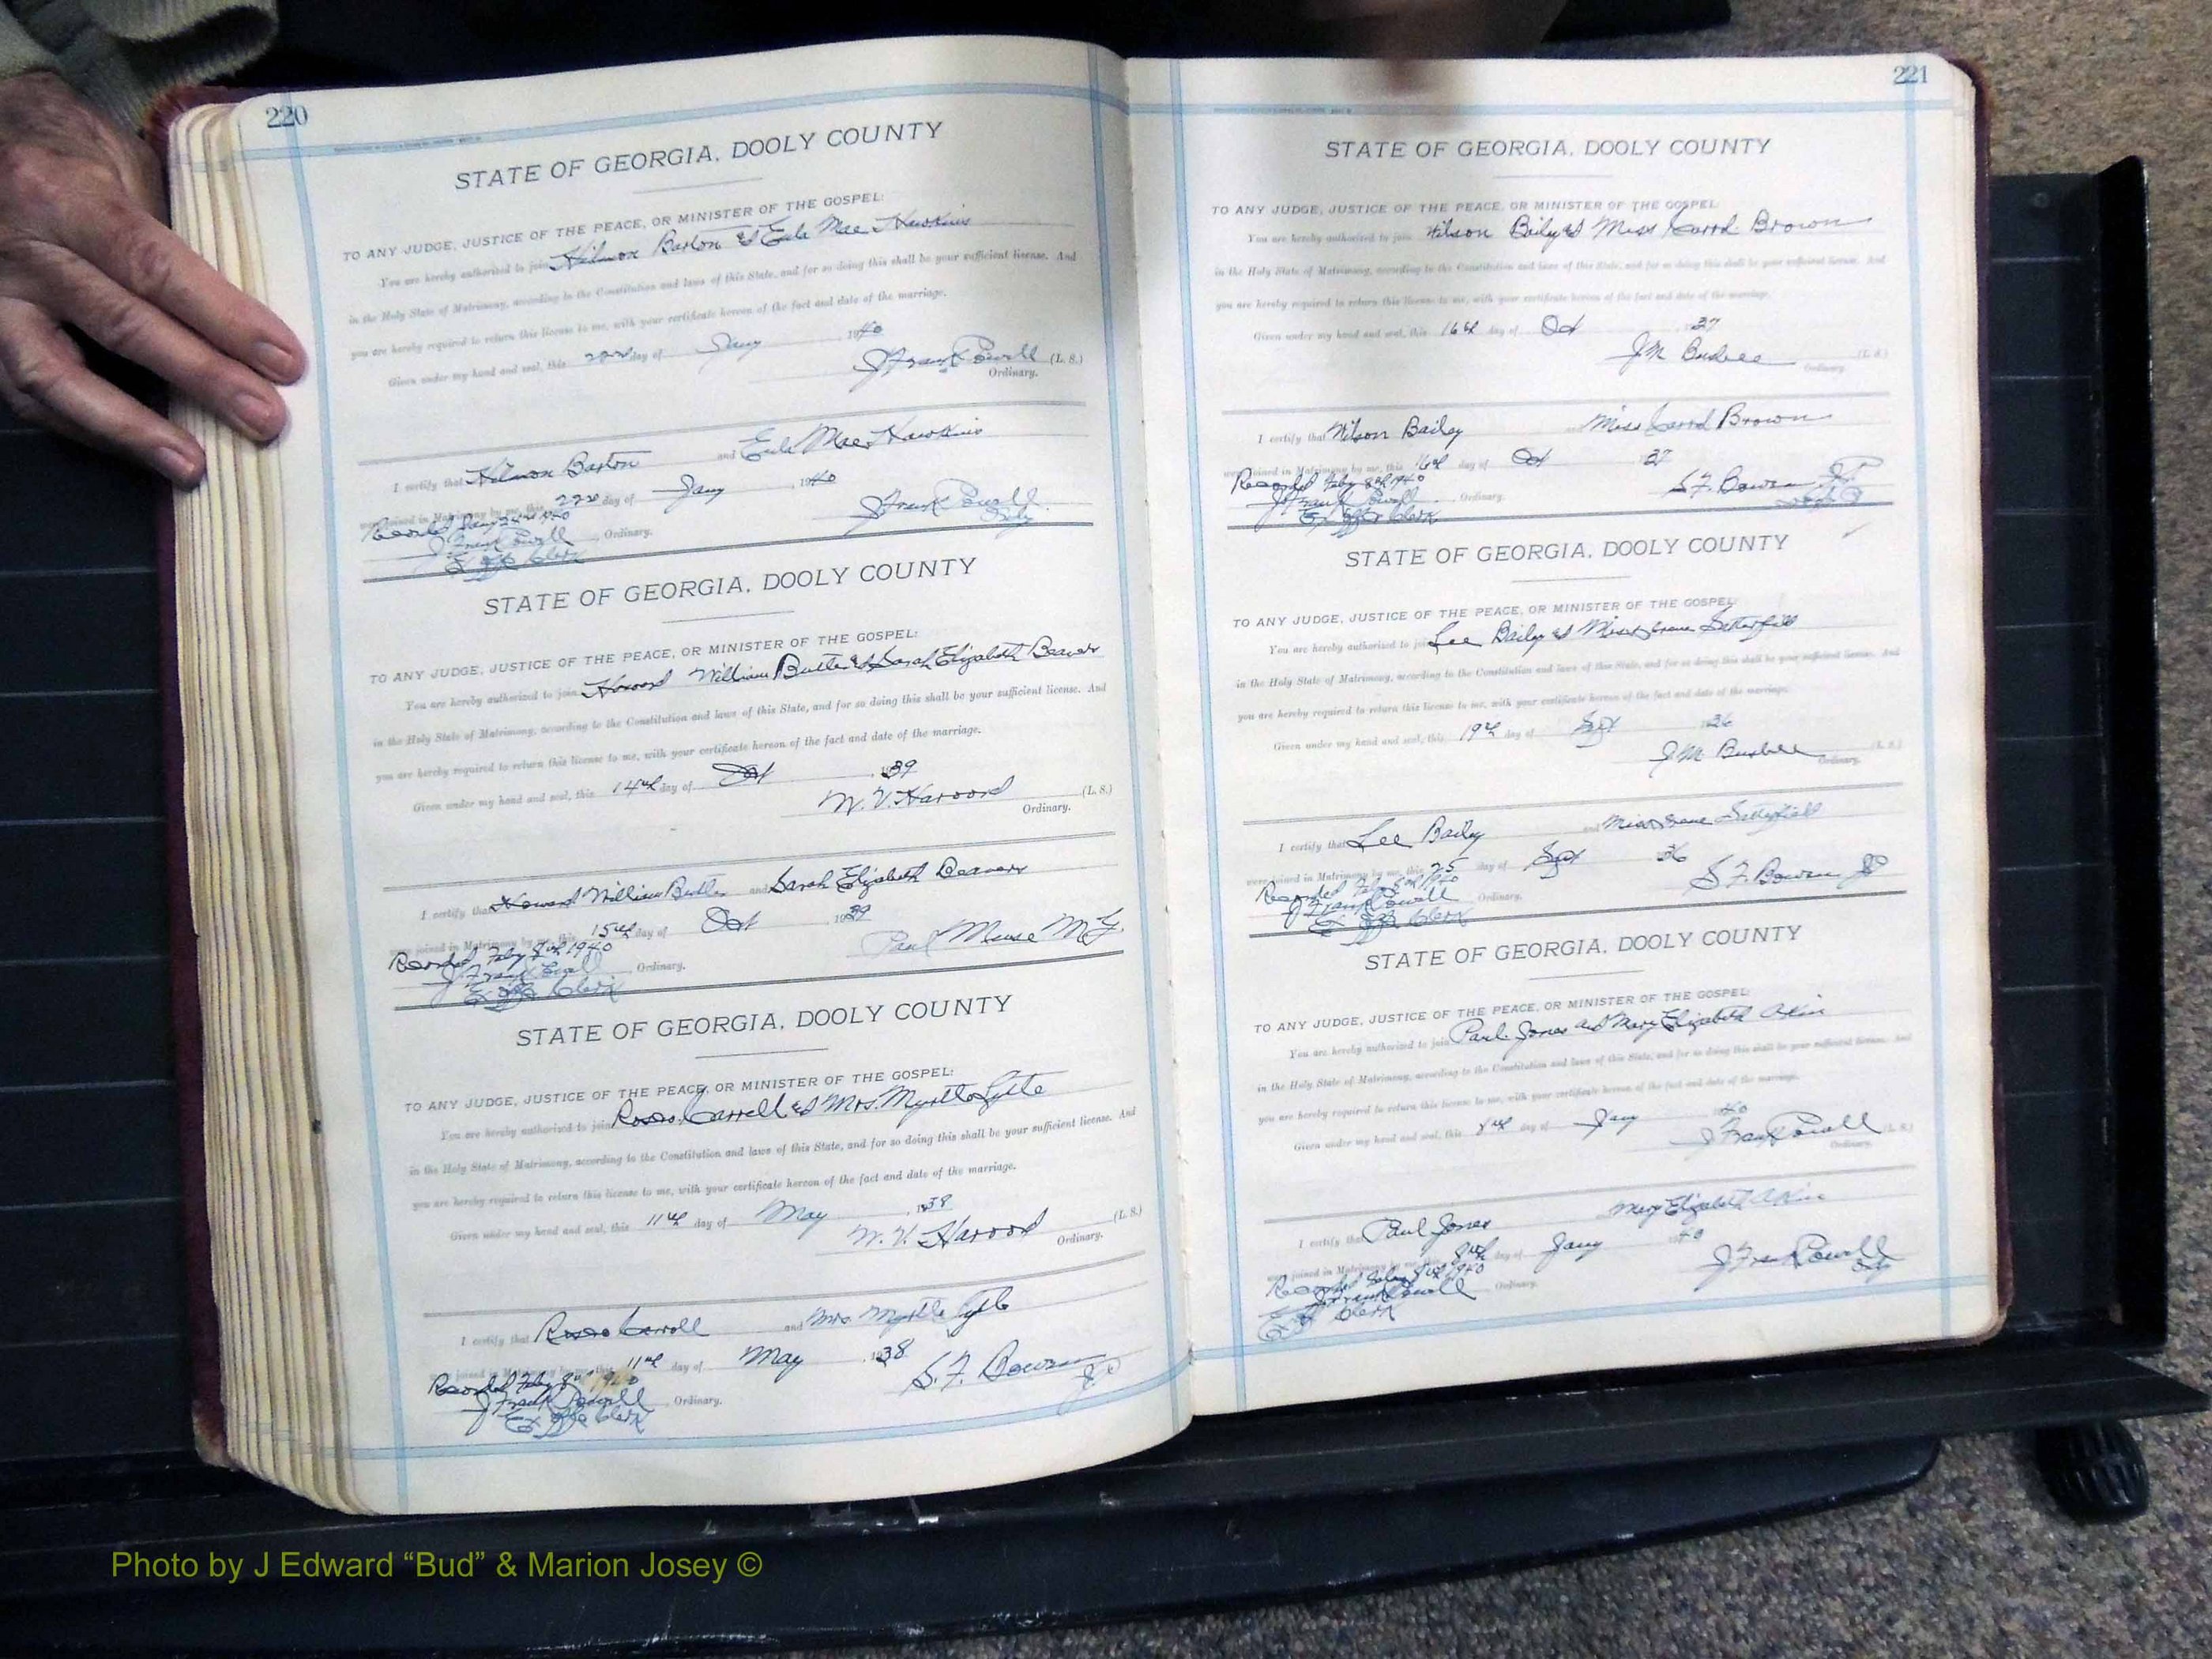 220
STATE OF GEORGIA, DOOLY COUNTY
TO ANY JUDGE, JUSTICE OF THE PEACE, OR MINISTER OF THE GOSPEL:
You are hereby authorized to join Hilmon Barton & Eula Mae Hawkins
in the Holy State of Matrimony, according to the Constitution and laws of this State, and for so doing this shall be your sufficient license. And
you are hereby required to return this license to me, with your certificate hereon of the fact and date of the marriage.
Given under my hand and seal, this 22nd day of Jany 1940
J Frank Powell (L. S.)
Ordinary.
I certify that Hilmon Barton and Eula Mae Hawkins
were joined in Matrimony by me, this 22nd day of Jany 1940
Recorded Jany 1940 J Frank Powell
J Frank Powell Ordinary.
Ex Offo Clerk
STATE OF GEORGIA, DOOLY COUNTY
TO ANY JUDGE, JUSTICE OF THE PEACE, OR MINISTER OF THE GOSPEL:
You are hereby authorized to join Howard William Butler & Sarah Elizabeth Beaver
in the Holy State of Matrimony, according to the Constitution and laws of this State, and for so doing this shall be your sufficient license. And
you are hereby required to return this license to me, with your certificate hereon of the fact and date of the marriage.
Given under my hand and seal, this 14th day of Oct 1939
W. V. Harvard (L. S.)
Ordinary.
I certify that Howard William Butler and Sarah Elizabeth Beaver
were joined in Matrimony by me, this 15th day of Oct 1939
Recorded Feby 8th 1940 Paul M. G.
J Frank Powell Ordinary.
Ex Offo Clerk
STATE OF GEORGIA, DOOLY COUNTY
TO ANY JUDGE, JUSTICE OF THE PEACE, OR MINISTER OF THE GOSPEL:
You are hereby authorized to join Rosco Carroll & Mrs. Myrtle Lytle
in the Holy State of Matrimony, according to the Constitution and laws of this State, and for so doing this shall be your sufficient license. And
you are hereby required to return this license to me, with your certificate hereon of the fact and date of the marriage.
Given under my hand and seal, this 11th day of May 1938
W. V. Harvard (L. S.)
Ordinary.
I certify that Rosco Carroll and Mrs. Myrtle Lytle
were joined in Matrimony by me, this 11th day of May 1938
Recorded Feby 8th 1940 S. F. Bowen J P
J Frank Powell Ordinary.
Ex Offo Clerk
221
STATE OF GEORGIA, DOOLY COUNTY
TO ANY JUDGE, JUSTICE OF THE PEACE, OR MINISTER OF THE GOSPEL:
You are hereby authorized to join Wilson Baily & Miss Brown
in the Holy State of Matrimony, according to the Constitution and laws of this State, and for so doing this shall be your sufficient license. And
you are hereby required to return this license to me, with your certificate hereon of the fact and date of the marriage.
Given under my hand and seal, this 16th day of Oct 1937
J M Busbee (L. S.)
Ordinary.
I certify that Wilson Bailey and Miss Brown
were joined in Matrimony by me, this 16th day of Oct 1937
Recorded Feby 8th 1940 S. F. Bowen J P
J Frank Powell Ordinary.
Ex Offo Clerk
STATE OF GEORGIA, DOOLY COUNTY
TO ANY JUDGE, JUSTICE OF THE PEACE, OR MINISTER OF THE GOSPEL:
You are hereby authorized to join Lee Baily & Miss Irene Satterfield
in the Holy State of Matrimony, according to the Constitution and laws of this State, and for so doing this shall be your sufficient license. And
you are hereby required to return this license to me, with your certificate hereon of the fact and date of the marriage.
Given under my hand and seal, this 19th day of Sept 1936
J M Busbee (L. S.)
Ordinary.
I certify that Lee Baily and Miss Irene Satterfield
were joined in Matrimony by me, this 25 day of Sept 1936
Recorded Feby 8th 1940 S. F. Bowen J P
J Frank Powell Ordinary.
Ex Offo Clerk
STATE OF GEORGIA, DOOLY COUNTY
TO ANY JUDGE, JUSTICE OF THE PEACE, OR MINISTER OF THE GOSPEL:
You are hereby authorized to join Paul Jones and Mary Elizabeth Akin
in the Holy State of Matrimony, according to the Constitution and laws of this State, and for so doing this shall be your sufficient license. And
you are hereby required to return this license to me, with your certificate hereon of the fact and date of the marriage.
Given under my hand and seal, this 8th day of Jany 1940
J Frank Powell (L. S.)
Ordinary.
I certify that Paul Jones Mary Elizabeth Akin
were joined in Matrimony by me, this 8th day of Jany 1940
Recorded Feby 8th 1940 J Frank Powell
J Frank Powell Ordinary.
Ex Offo Clerk
Photo by J Edward “Bud” & Marion Josey ©